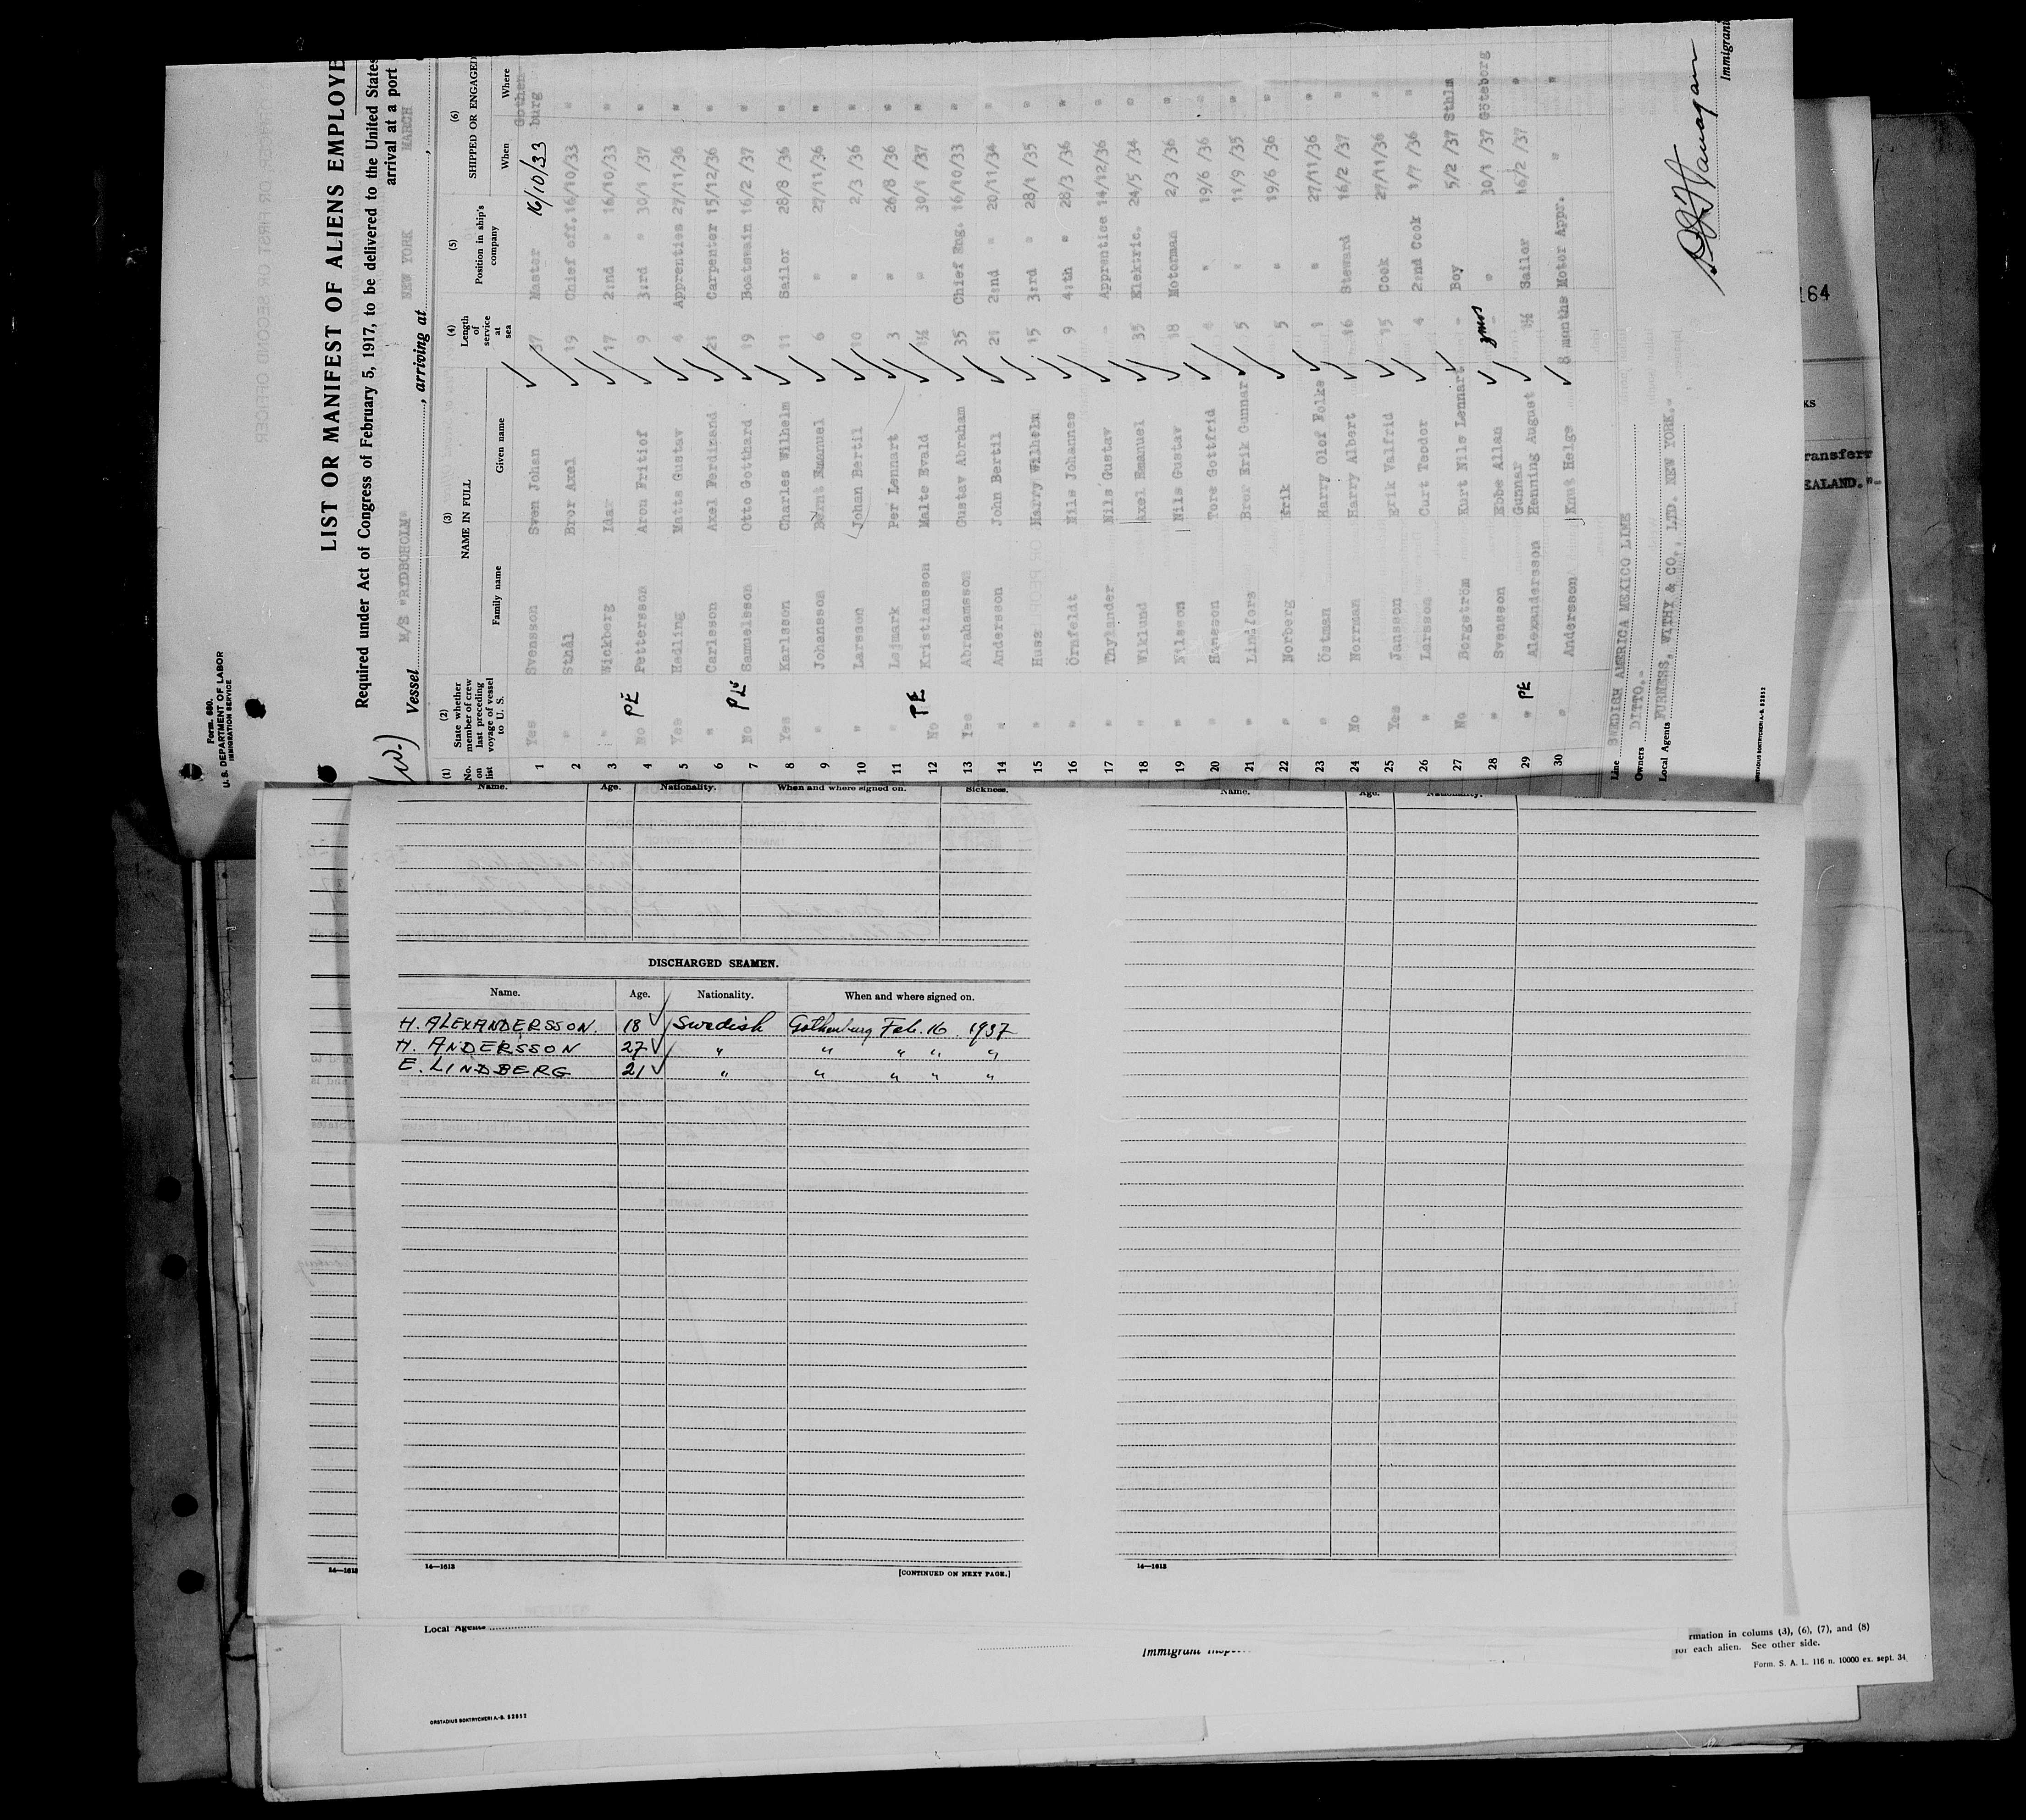 Form. 680.
U. S. DEPARTMENT OF LABOR
IMMIGRATION SERVICE
(W.)
LIST OR MANIFEST OF ALIENS EMPLOYE
Required under Act of Congress of February 5, 1917, to be delivered to the United States
arrival at a port
Vessel M/S "RYDBOHOLM" , arriving at NEW YORK MARCH ,
(1) No. on list (2) State whether member of crew last preceding voyage of vessel to U. S. (3) NAME IN FULL Family name Given name (4) Length of service at sea (5) Position in ship's company (6) SHIPPED OR ENGAGED When Where
1 Yes Svensson Sven Johan 37 Master 16/10/33 Gothenburg
2 " Sthål Bror Axel 19 Chief off. 16/10/33 "
3 " Wickberg Idar 17 2:nd " 16/10/33 "
4 No PE Pettersson Aron Fritiof 9 3:rd " 30/1 /37 "
5 Yes Hedling Matts Gustav 4 Apprenties 27/11/36 "
6 " Carlsson Axel Ferdinand 21 Carpenter 15/12/36 "
7 No PE Samuelsson Otto Gotthard 19 Boatswain 16/2 /37 "
8 Yes Karlsson Charles Wilhelm 11 Sailor 28/8 /36 "
9 " Johansson Bernt Emanuel 6 " 27/11/36 "
10 " Larsson Johan Bertil 10 " 2/3 /36 "
11 " Lejmark Per Lennart 3 " 26/8 /36 "
12 No PE Kristiansson Malte Evald 1½ " 30/1 /37 "
13 Yes Abrahamsson Gustav Abraham 35 Chief Eng. 16/10/33 "
14 " Andersson John Bertil 21 2:nd " 20/11/34 "
15 " Huss Harry Wilhelm 15 3:rd " 28/1 /35 "
16 " Örnfeldt Nils Johannes 9 4:th " 28/3 /36 "
17 " Thylander Nils Gustav - Apprentice 14/12/36 "
18 " Wiklund Axel Emanuel 35 Elektric. 24/5 /34 "
19 " Nilsson Nils Gustav 18 Motorman 2/3 /36 "
20 " Hansson Tore Gottfrid 4 " 19/6 /36 "
21 " Lindfors Bror Erik Gunnar 5 " 11/9 /35 "
22 " Norberg Erik 5 " 19/6 /36 "
23 " Östman Harry Olof Folke 1 " 27/11/36 "
24 No Norrman Harry Albert 16 Steward 16/2 /37 "
25 Yes Jansson Erik Valfrid 15 Cook 27/11/36 "
26 " Larsson Curt Teodor 4 2:nd Cook 1/7 /36 "
27 No Borgström Kurt Nils Lennart - Boy 5/2 /37 Sthlm
28 " Svensson Ebbe Allan - " 30/1 /37 Göteborg
29 " PE Alexandersson Gunnar Henning August 1½ Sailor 16/2 /37 "
30 " Andersson Knut Helge 8 months Motor Appr. " "
Line SWEDISH AMERICA MEXICO LINE
Owners DITTO.-
Local Agents FURNESS, WITHY & CO., LTD. NEW YORK.-
Immigrant
ORSTADIUS BOKTRYCKERI A.-B. 52852
164
KS
ransferr
EALAND."-
Name. Age. Nationality. When and where signed on. Sickness.
DISCHARGED SEAMEN.
Name. Age. Nationality. When and where signed on.
H. ALEXANDERSSON. 18 Swedish Gothenburg Feb. 16 1937
H. ANDERSSON 27 " " " " "
E. LINDBERG 21 " " " " "
14—1613
[CONTINUED ON NEXT PAGE.]
Name. Age. Nationality.
14—1613
14—1613
Local Agents
Immigrant Inspe
rmation in colums (3), (6), (7), and (8)
for each alien. See other side.
Form. S. A. L. 116 n. 10000 ex. sept. 34
ORSTADIUS BOKTRYCKERI A.-B. 52852